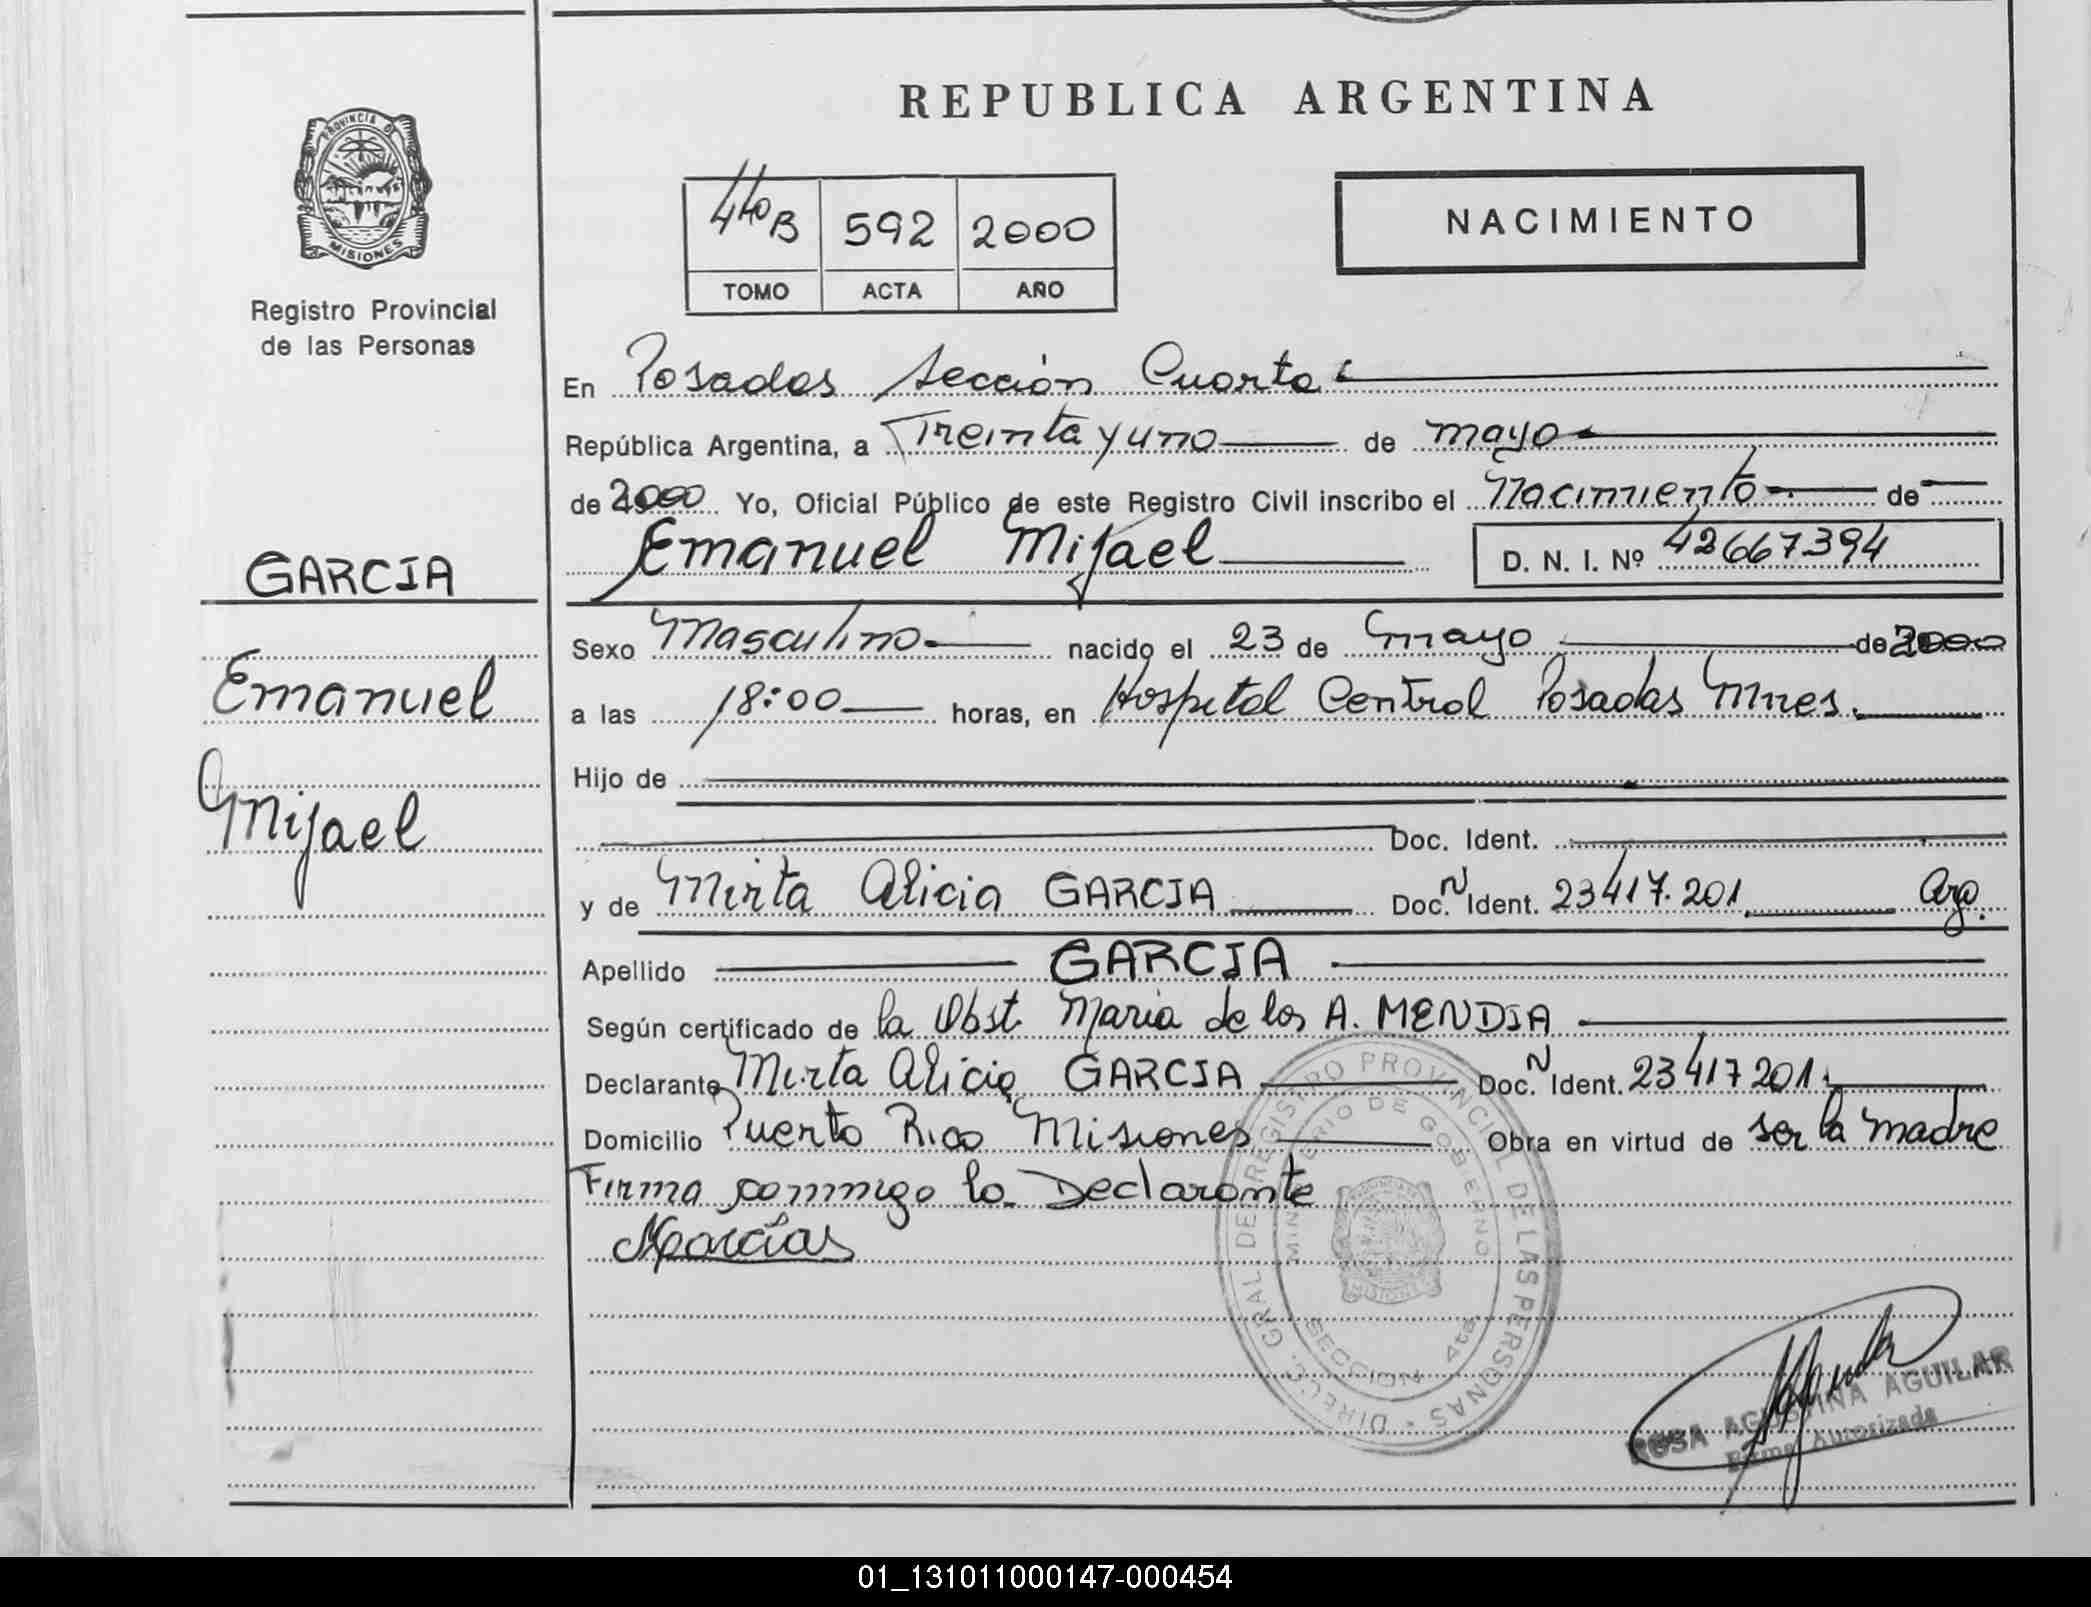 REPUBLICA ARGENTINA
PROVINCIA DE
MISIONES
Registro Provincial
de las Personas
GARCIA
Emanuel
Mijael
440B 592 2000
TOMO ACTA AÑO
NACIMIENTO
En Posadas Sección Cuarta
República Argentina, a Treinta y uno de mayo
de 2000 Yo, Oficial Público de este Registro Civil inscribo el Nacimiento de
Emanuel Mijael D. N. I. Nº 42667394
Sexo Masculino nacido el 23 de mayo de 2000
a las 18:00 horas, en Hospital Central Posadas Mnes.
Hijo de
Doc. Ident.
y de Mirta Alicia GARCIA Doc. N Ident. 23417.201 Arg.
Apellido GARCIA
Según certificado de la Obst. Maria de los A. MENDIA
Declarante Mirta Alicia GARCIA Doc. N Ident. 23417201
Domicilio Puerto Rico Misiones Obra en virtud de ser la madre
Firma conmigo la Declarante
DIREC. GRAL. DE REGISTRO PROVINCIAL DE LAS PERSONAS
MINISTERIO DE GOBIERNO
SECCION 4ta
ROSA AGUSTINA AGUILAR
Firma Autorizada
01_131011000147-000454